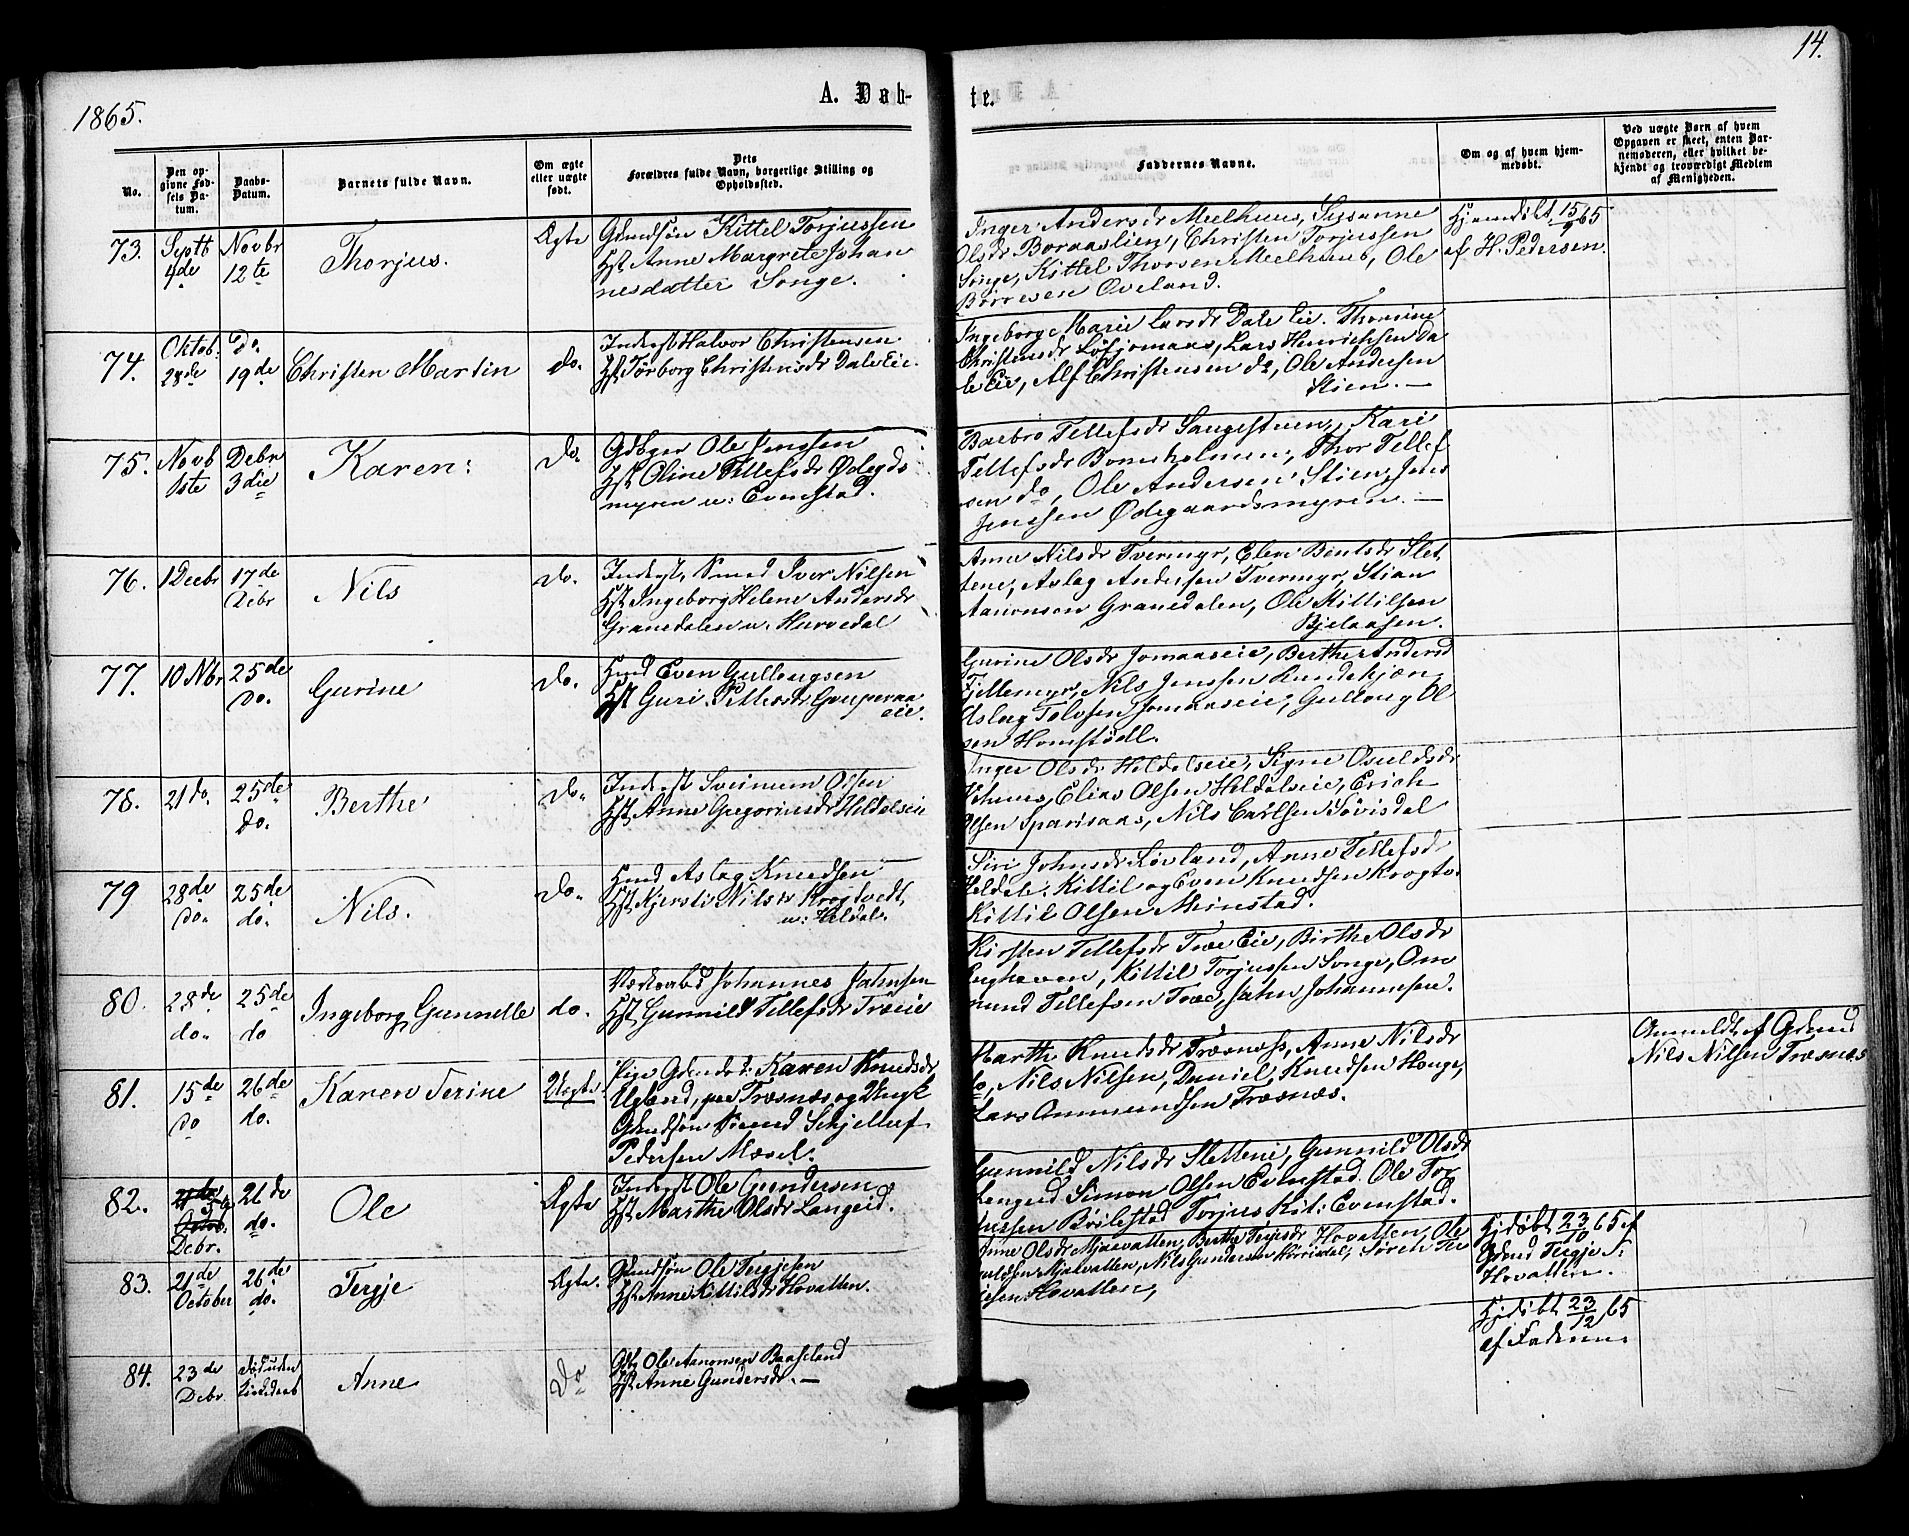 14.
1865.
A. Døb-
te.
No.
Den op-
givne Fød-
sels Da-
tum.
Daabs-
Datum.
Barnets fulde Navn.
Om ægte
eller uægte
født.
Dets
Forældres fulde Navn, borgerlige Stilling og
Opholdssted.
Faddernes Navne.
Om og af hvem hjem-
medøbt.
Ved uægte Børn af hvem
Opgaven er skeet, enten Bar-
nemoderen, eller hvilket be-
kjendt og troværdigt Medlem
af Menigheden.
73.
Septb
4de
Novbr
12te
Thorjus.
Ægte
Gdmdsøn Kittel Torjussen
Hst Anne Margrete Johan
nesdatter Songe.
Inger Andersdr Meelhuus, Susanne
Olsdr Boraaslien, Christen Torjussen
Songe, Kittel Thorsen Meelhuus, Ole
Oveland.
Hjemdøbt 15/9 65
af H. Pedersen.
74.
Oktob.
28de
Do.
19de
Christen Martin
do.
Inderst Halvor Christensen
Hst Torborg Christensdr Dale Eie.
Ingeborg Marie Larsdr Dale Eie. Thomine
Christensdr Løfjomaas, Lars Henrichsen Da
le Eie, Alf Christensen do, Ole Andersen
Stien. —
75.
Novb
1ste
Debr
3die
Karen:
do.
Gdbgr Ole Jenssen
Hst Oline Tellefsdr Ødegds
myren u: Evenstad.
Barbro Tellefsdr Saugestuen, Kari
Tellefsdr Bommholmen, Thor Tellef
sen do, Ole Andersen Stien, Jens
Jenssen Ødegaardsmyren. —
76.
1 Decbr
17de
Debr
Nils
do.
Inderst, Smed Iver Nilsen
Hst Ingeborg Helene Andersdr
Granedalen u. Hurvedal
Anne Nilsdr Tvermyr, Elen Bentsdr Slet
tene, Aslag Andersen Tvermyr, Stian
Aanonsen Granedalen, Ole Kittilsen
Bjelaasen.
77.
10 Nbr
25de
Do.
Gurine
do.
Hmd Even Gullougsen
Hst Guri Tellefsdr
eie.
Gurine Olsdr Jomaaseie, Berthe Andersd
Fjellemyr, Nils Jenssen Rundekjøn
Aslag Tolvsen Jomaaseie, Gulloug Ol
sen Homstødl.
78.
21 do.
25de
do.
Berthe
do.
Inderst Sveinum Olsen
Hst Anne Gregoriusdr Heldalseie
Inger Olsdr Heldalseie, Signe Osuldsdr
Elias Olsen Heldalseie, Erich
Olsen Sparisaas, Nils Carlsen Søvisdal
79
28de
Do.
25de
do.
Nils.
do.
Hmd Aslag Knudsen
Hst Kjersti Nilsdr Krogtvedt,
u: Heldal.
Siri Johnsdr Løvland, Anne Tellefsdr
Heldal. Kittil og Even Knudsen Krogtv.
Kittil Olsen Minstad.
80.
28de
do.
25de
do
Ingeborg Gunnelle
do.
Johannes Jahnsen
Hst Gunnild Tellefsdr Træeie
Kirsten Tellefsdr Træ Eie, Birthe Olsdr
Enghaven, Kittil Torjussen Songe, Om
mund Tellefsen Træ, Jahn Johannesen.
81.
15de
do
26de
do.
Karen Terine
Uægte.
Pige Karen Knudsdr
Ugland, paa Træsnæs og Ungk
Gdmdsøn Schjelluf
Pedersen Mæsel.
Marthe Knudsdr Træsnæss, Anne Nilsdr
do, Nils Nilsen, Daniel Knudsen Houge,
Lars Ommundsen Træsnæs.
Anmeldt af Gdmd
Nils Nilsen Træsnæs
82.
Debr.
26de
do.
Ole
Ægte
Inderst Ole Gundersen
Hst Marthe Olsdr Langeid.
Gunnild Nilsdr Slettene, Gunnild Olsdr
Langeid Simon Olsen Evenstad. Ole Tor
jussen Bøilestad Torjus Kit: Evenstad.
83.
21de
October
26de
do.
Tergje
Ægte.
Gdmdsøn Ole Tergjesen
Hst Anne Kittilsdr Hovatten.
Anne Olsdr Mjaavatten, Berthe Terjesdr Hovatten, Ole
Mjaavatten, Nils Gundersen Harrisdal, Søren Ter
jesen Hovatten,
Hjdøbt 23/10 65 af
Gdmd Tergje T:
Hovatten.
84.
23de
Debr.
Anne
do
Gdb Ole Aanonsen Baaseland
Hst Anne Gundersdr. —
Hjdøbt 23/12 65
af Faderen.